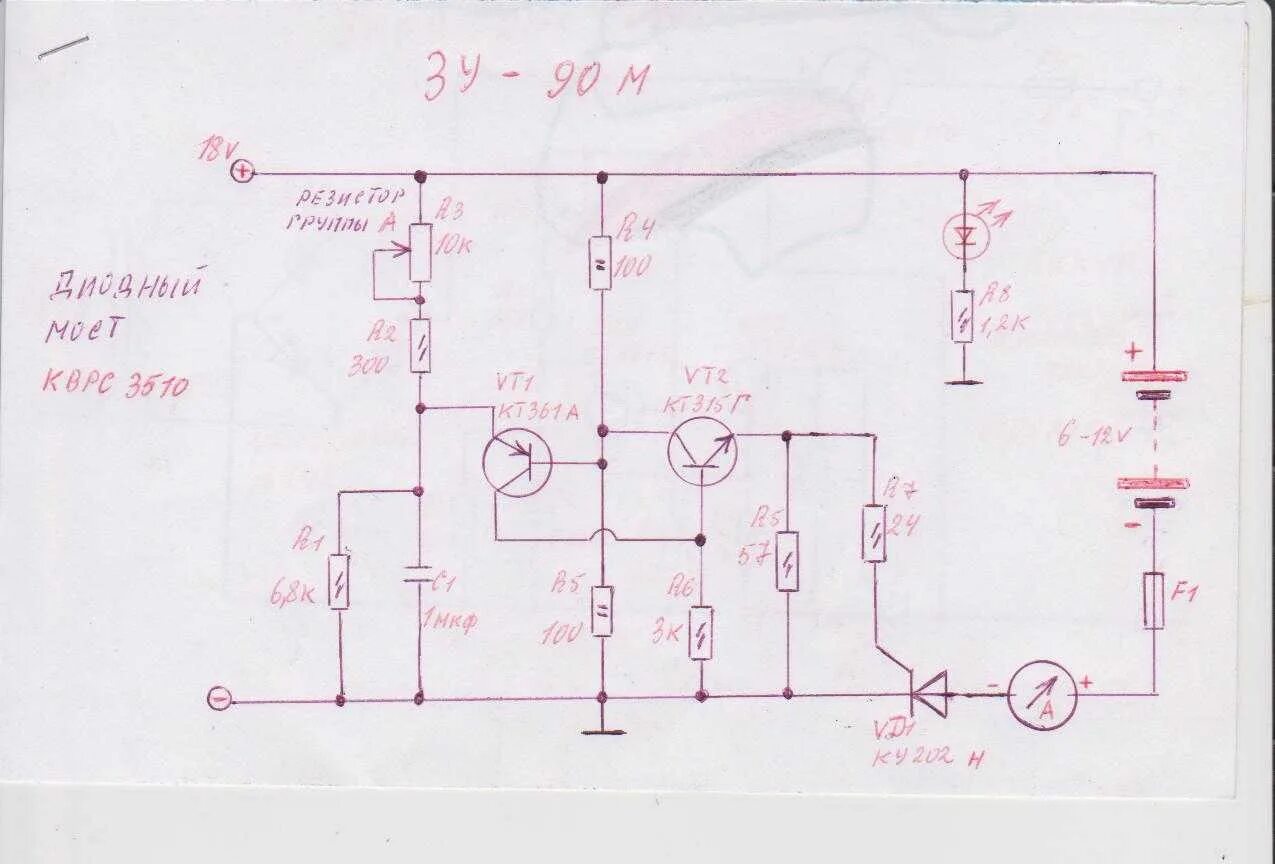 ЗУ - 90 М
18V
+
РЕЗИСТОР
ГРУППЫ А
R3
10К
R4
100
ДИОДНЫЙ
МОСТ
КВРС 3510
R2
300
VT1
КТ361А
VT2
КТ315Г
R8
1,2К
+
6-12V
-
R1
6,8К
C1
1мкф
R5
100
R6
3К
R5
57
R7
24
F1
-
VD1
КУ202 Н
- A +